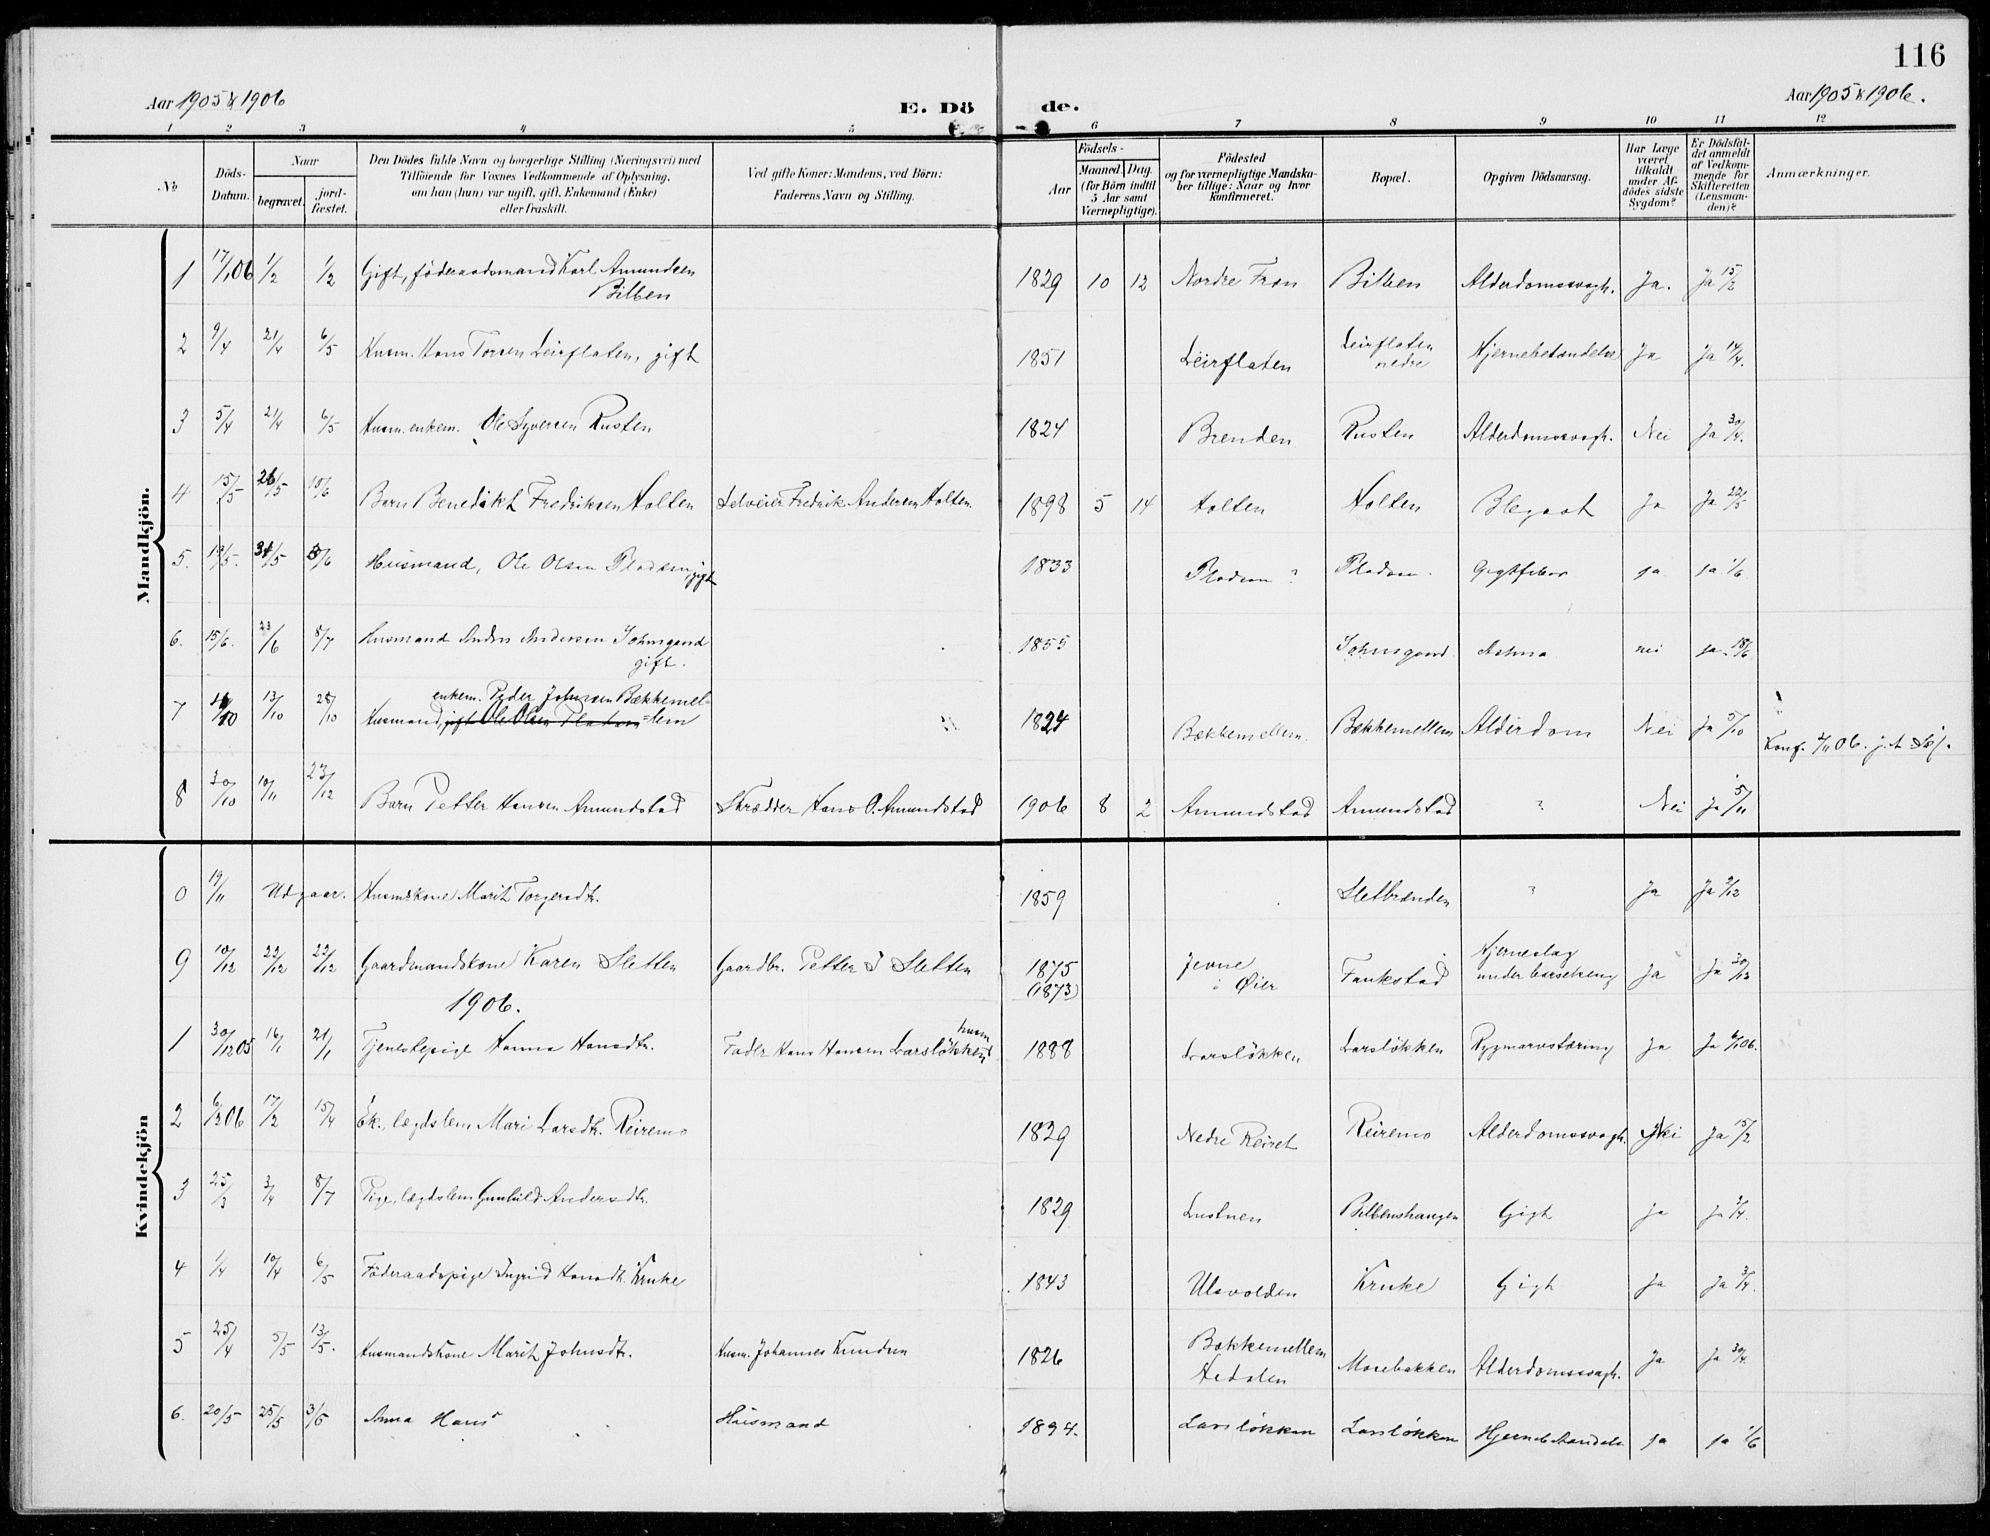 116
Aar 1905 & 1906
E. Dö de.
Aar 1905 & 1906.
1 2 3 4 5 6 7 8 9 10 11 12
No
Döds-
Datum.
Naar
begravet.
jord-
fæstet.
Den Dödes fulde Navn og borgerlige Stilling (Næringsvei) med
Tilföiende for Voxnes Vedkommende af Oplysning,
om han (hun) var ugift, gift, Enkemand (Enke)
eller fraskilt.
Ved gifte Koner: Mandens, ved Börn:
Faderens Navn og Stilling.
Födsels-
Aar
Maaned. Dag.
(for Börn indtil
5 Aar samt
Værnepligtige).
Födested
og for værnepligtige Mandska-
ber tillige: Naar og hvor
konfirmeret.
Bopæl.
Opgiven Dödsaarsag.
Har Læge
været
tilkaldt
under Af-
dödes sidste
Sygdom?
Er Dödsfal-
det anmeldt
af Vedkom-
mende for
Skifteretten
(Lensman-
den)?
Anmærkninger.
Mandkjön.
1 17/1 06 1/2 1/2 Gift, föderaadsmand Karl Amundsen
Bilben
1829 10 12 Nordre Fron Bilben Alderdomssvagh. Ja. Ja 15/2
2 9/4 21/4 6/5 Husm. Hans Torsen Leirflaten, gift 1851 Leirflaten Leirflaten
nedre
Hjernebetændelse Ja Ja 14/4.
3 5/4 21/4 6/5 Husm. enkem. Ole Syversen Rusten 1824 Brenden Rusten Alderdomssvagh. Nei Ja 30/4.
4 15/5 26/5 10/6 Barn Benedikt Fredriksen Holten Selveier Fredrik Andersen Holten. 1898 5 14 Holten Holten Blegsot Ja Ja 22/5
5. 19/5. 31/5 /6 Husmand, Ole Olsen Pladsen gift 1833 Pladsen ? Pladsen. Gigtfeber ja ja 1/6
6. 15/6. 23/6 8/7 Husmand Anders Andersen
gift.
1855 Astma nei ja 18/6
7 /10 13/10 28/10 Husmand, gift Ole Olsen Pladsen
enkem. Peder Johnsen Bækkemel-
=lem
1824 Bækkemellem. Bækkemellem Alderdom Nei Ja 5/10
8 30/10 10/11 23/12 Barn Petter Hansen Amundstad Skrædder Hans O. Amundstad 1906 8 2 Amundstad Amundstad ? Nei Ja 5/11
Kvindekjön
0 19/11 Udgaar. Husmskone Marit Torgersdtr. 1859 Sletbrænden ? Ja Ja /12
9 10/12 22/12 22/12 Gaardmandskone Karen Sletten Gaardbr. Petter J Sletten 1875
(1873)
Jevne
i Öier
Faukstad Hjerneslag
under barseleng
Ja Ja 30/12
1906.
1 30/12 05 16/1 21/1 Tjenestepige Hanna Hansdtr. Fader Hans Hansen Larslökken
husm
1888 Larslökken Larslökken Rygmarvstæring Ja Ja 6/1 06.
2 6/2 06 17/2 15/4 Ek., lægdslem Mari Larsdtr. Reiremo 1829 Nedre Reiret Reiremo Alderdomssvagh. Nei Ja 15/2
3 25/3 3/4 8/7 Pige, lægdslem Gunhild Andersdtr. 1829 Bilbenshaugen Gigt ja ja /4.
4 1/4 10/4 6/5 Föderaadspige Ingrid Hansdtr. Kruke 1843 Ulsvolden Kruke Gigt Ja Ja 3/4.
5 25/4 5/5 13/5. Husmandskone Marit Johnsdtr. Husm. Johannes Knudsen 1826 Bækkemellem
Hedalen
Morebakken Alderdomssvagh. Ja Ja 30/4.
6. 20/5 25/5 3/6 Anna Hans Husmand 1894. Larslökken Larslökken ja ja 1/6